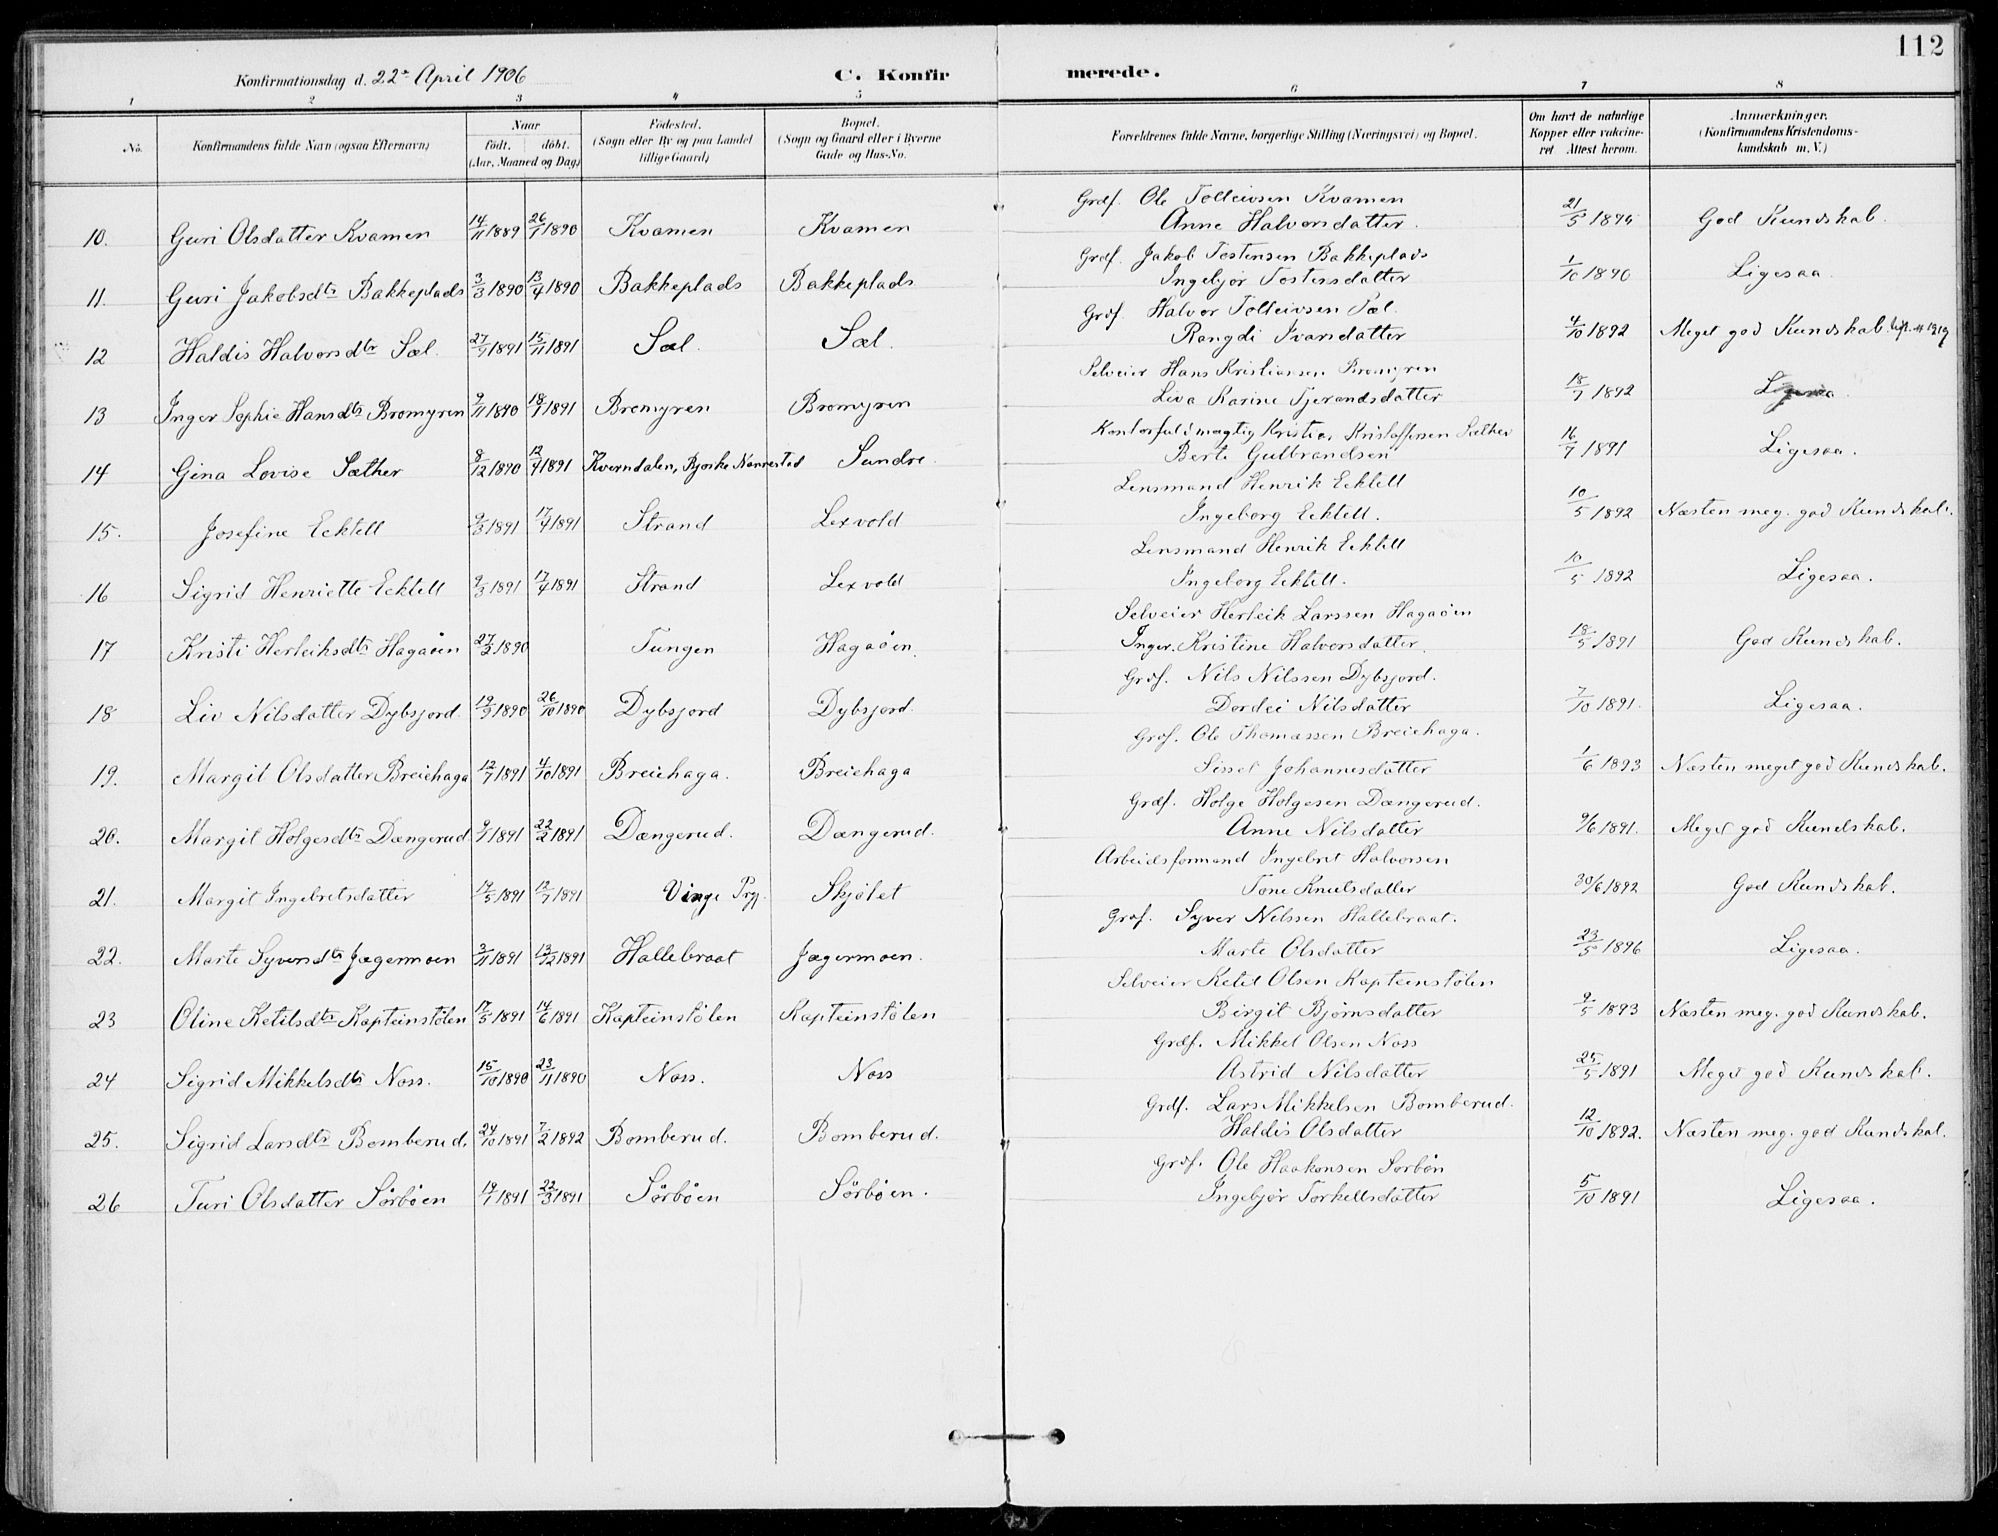 112
Konfirmationsdag d. 22de April 1906 C. Konfir merede.
1 2 3 4 5 6 7 8
No. Konfirmandens fulde Navn (ogsaa Efternavn) Naar födt. döbt. (Aar, Maaned og Dag) Födested. (Sogn eller By og paa Landet tillige Gaard) Bopæl. (Sogn og Gaard eller i Byerne Gade og Hus-No. Forældrenes fulde Navne, borgerlige Stilling (Næringsvei) og Bopæl. Om havt de naturlige Kopper eller vakcineret Attest herom. Anmærkninger. (Konfirmandens Kristendomskundskab m. V.)
Grdf. Ole Tolleivsen Kvamen
10. Guri Olsdatter Kvamen 14/11 1889 26/1 1890 Kvamen Kvamen Anne Halvorsdatter. 21/5 1894 God Kundskab.
Grdf. Jakob Tostensen Bakkeplads
11. Guri Jakobsdtr Bakkeplads 3/3 1890 13/4 1890 Bakkeplads Bakkeplads Ingebjør Tostensdatter 1/10 1890 Ligesaa.
Grdf. Halvor Tolleivsen Sæl.
12 Haldis Halvorsdtr Sæl. 27/9 1891 15/11 1891 Sæl. Sæl. Rangdi Ivarsdatter 4/10 1892 Meget god Kundskab.
Selveier Hans Kristiansen Bromyren
13 Inger Sophie Hansdtr Bromyren 9/11 1890 18/1 1891 Bromyren Bromyren Liva Karine Tjerandsdatter 18/7 1892 Ligesaa.
Kontorfuldmægtig Kristoffersen Sæther
14 Gina Lovise Sæther 8/12 1890 12/4 1891 Kverndalen, Sundre. Berte Gulbrandsen 16/7 1891 Ligesaa.
Lensmand Henrik Ecktell
15. Josefine Ecktell 9/3 1891 17/4 1891 Strand Lexvold Ingeborg Ecktell. 10/5 1892 Næsten meg. god Kundskab.
Lensmand Henrik Ecktell
16 Sigrid Henriette Ecktell 9/3 1891 17/4 1891 Strand Lexvold Ingeborg Ecktell. 10/5 1892 Ligesaa.
Selveier Herleik Larssen Hagaöen
17 Kristi Herleiksdtr Hagaöen 27/3 1890 Tungen Hagaöen. Inger Kristine Halvorsdatter. 18/5 1891 God Kundskab.
Grdf. Nils Nilssen Dybsjord.
18 Liv Nilsdatter Dybsjord. 19/9 1890 26/10 1890 Dybsjord Dybsjord. Dordei Nilsdatter 7/10 1891. Ligesaa.
Grdf. Ole Thomassen Breiehaga.
19. Margit Olsdatter Breiehaga 12/7 1891 4/10 1891 Breiehaga. Breiehaga Sissel Johannesdatter 1/6 1893 Næsten meget god Kundskab.
Grdf. Holge Holgesen Dængerud.
20. Margit Holgesdtr Dængerud 9/1 1891 22/2 1891 Dængerud. Dængerud. Anne Nilsdatter 9/6 1891. Meget god Kundskab.
Arbeidsformand Ingebret Halvorsen
21. Margit Ingebretsdatter 14/5 1891 12/7 1891 Vinge Prgj. Skjölet Tone Knutsdatter 30/6 1892 God Kundskab.
Grdf. Syver Nilssen Hallebraat.
22. Marte Syversdtr Jægermoen 3/11 1891 13/12 1891 Hallebraat Jægermoen. Marte Olsdatter 23/5 1896 Ligesaa.
Selveier Ketil Olsen Kapteinstölen
23 Oline Ketilsdtr Kapteinstölen 17/5 1891 14/6 1891 Kapteinstölen Kapteinstölen Birgit Bjørnsdatter 9/5 1893 Næsten meg. god Kundskab.
Grdf. Mikkel Olsen Noss
24 Sigrid Mikkelsdtr Noss. 15/10 1890 23/11 1890 Noss. Noss Astrid Nilsdatter 25/5 1891 Meget god Kundskab.
Grdf. Lars Mikkelsen Bomberud.
25. Sigrid Larsdtr Bomberud. 24/10 1891 7/2 1892 Bomberud. Bomberud. Haldis Olsdatter 12/10 1892. Næsten meg. god Kundskab.
Grdf. Ole Haakonsen Sørbön
26 Turi Olsdatter Sörböen 19/1 1891 22/3 1891 Sörböen Sörböen. Ingebjør Torkellsdatter 5/10 1891 Ligesaa.